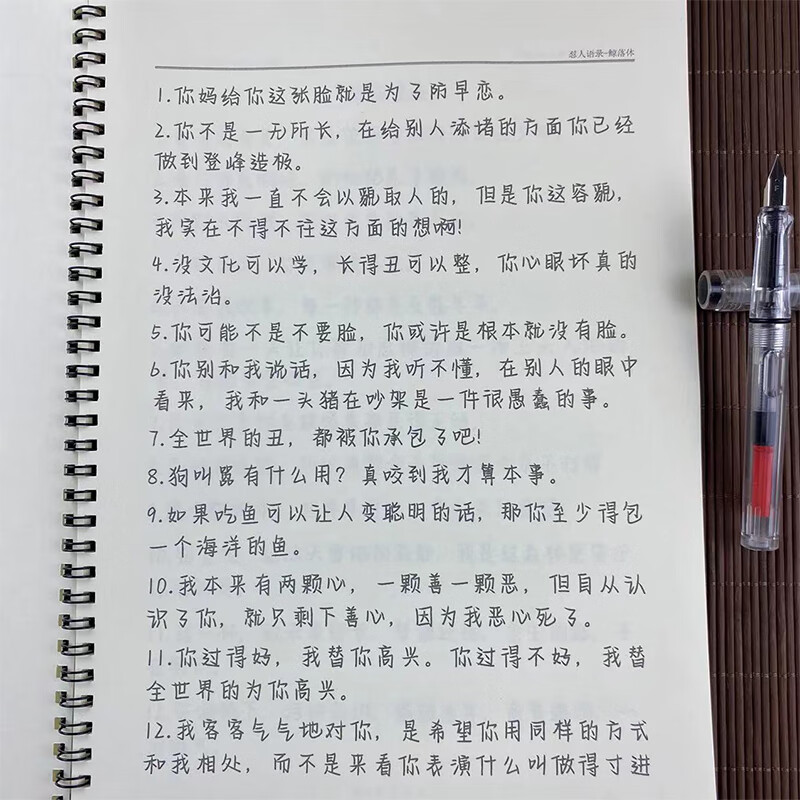 怼人语录-鲸落体
1.你妈给你这张脸就是为了防早恋。
2.你不是一无所长，在给别人添堵的方面你已经
做到登峰造极。
3.本来我一直不会以貌取人的，但是你这容貌，
我实在不得不往这方面的想啊!
4.没文化可以学，长得丑可以整，你心眼坏真的
没法治。
5.你可能不是不要脸，你或许是根本就没有脸。
6.你别和我说话，因为我听不懂，在别人的眼中
看来，我和一头猪在吵架是一件很愚蠢的事。
7.全世界的丑，都被你承包了吧!
8.狗叫嚣有什么用？真咬到我才算本事。
9.如果吃鱼可以让人变聪明的话，那你至少得包
一个海洋的鱼。
10.我本来有两颗心，一颗善一颗恶，但自从认
识了你，就只剩下善心，因为我恶心死了。
11.你过得好，我替你高兴。你过得不好，我替
全世界的为你高兴。
12.我客客气气地对你，是希望你用同样的方式
和我相处，而不是来看你表演什么叫做得寸进